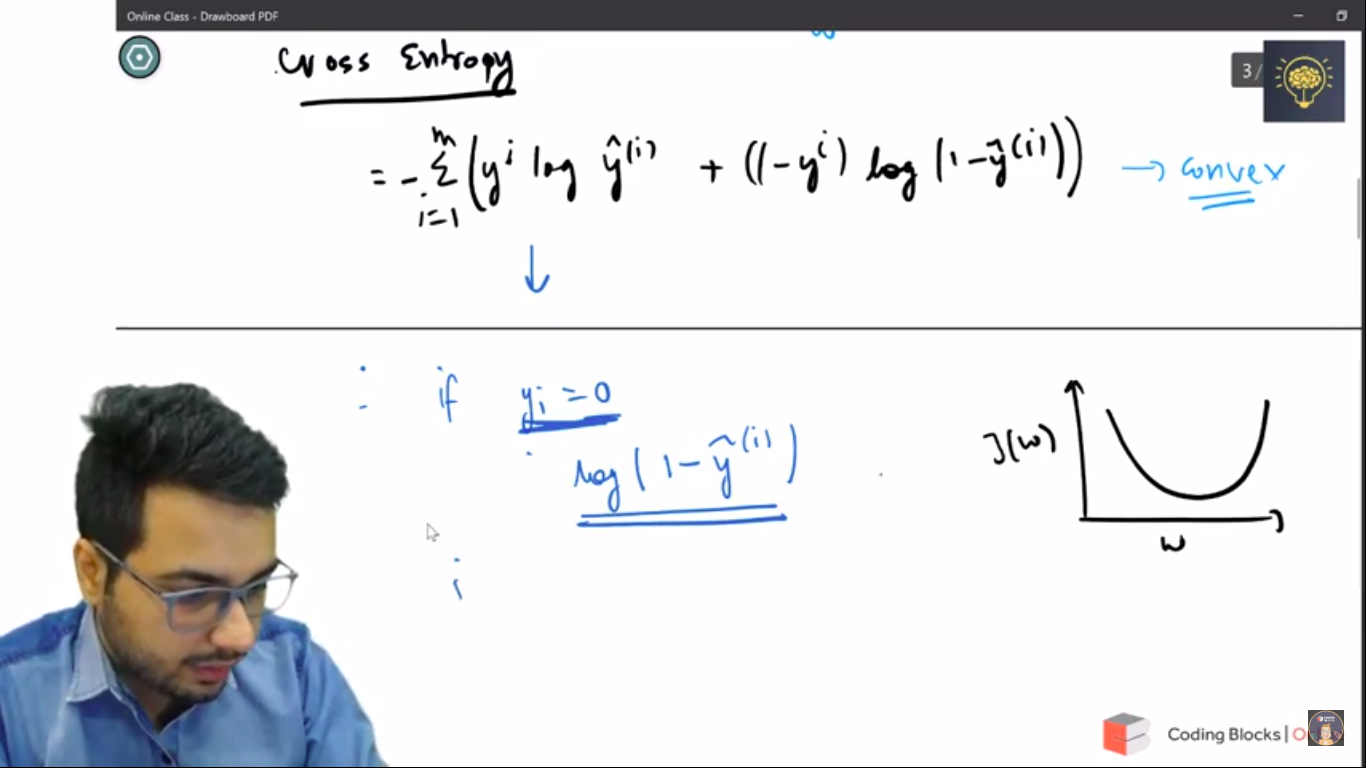 Online Class - Drawboard PDF
Cross Entropy
3/
= - m Σ i=1 (y^i log ŷ^(i) + (1-y^i) log (1-ŷ^(i))) → convex
: if yi = 0
log (1-ŷ^(i))
J(w)
w
i
Coding Blocks | O